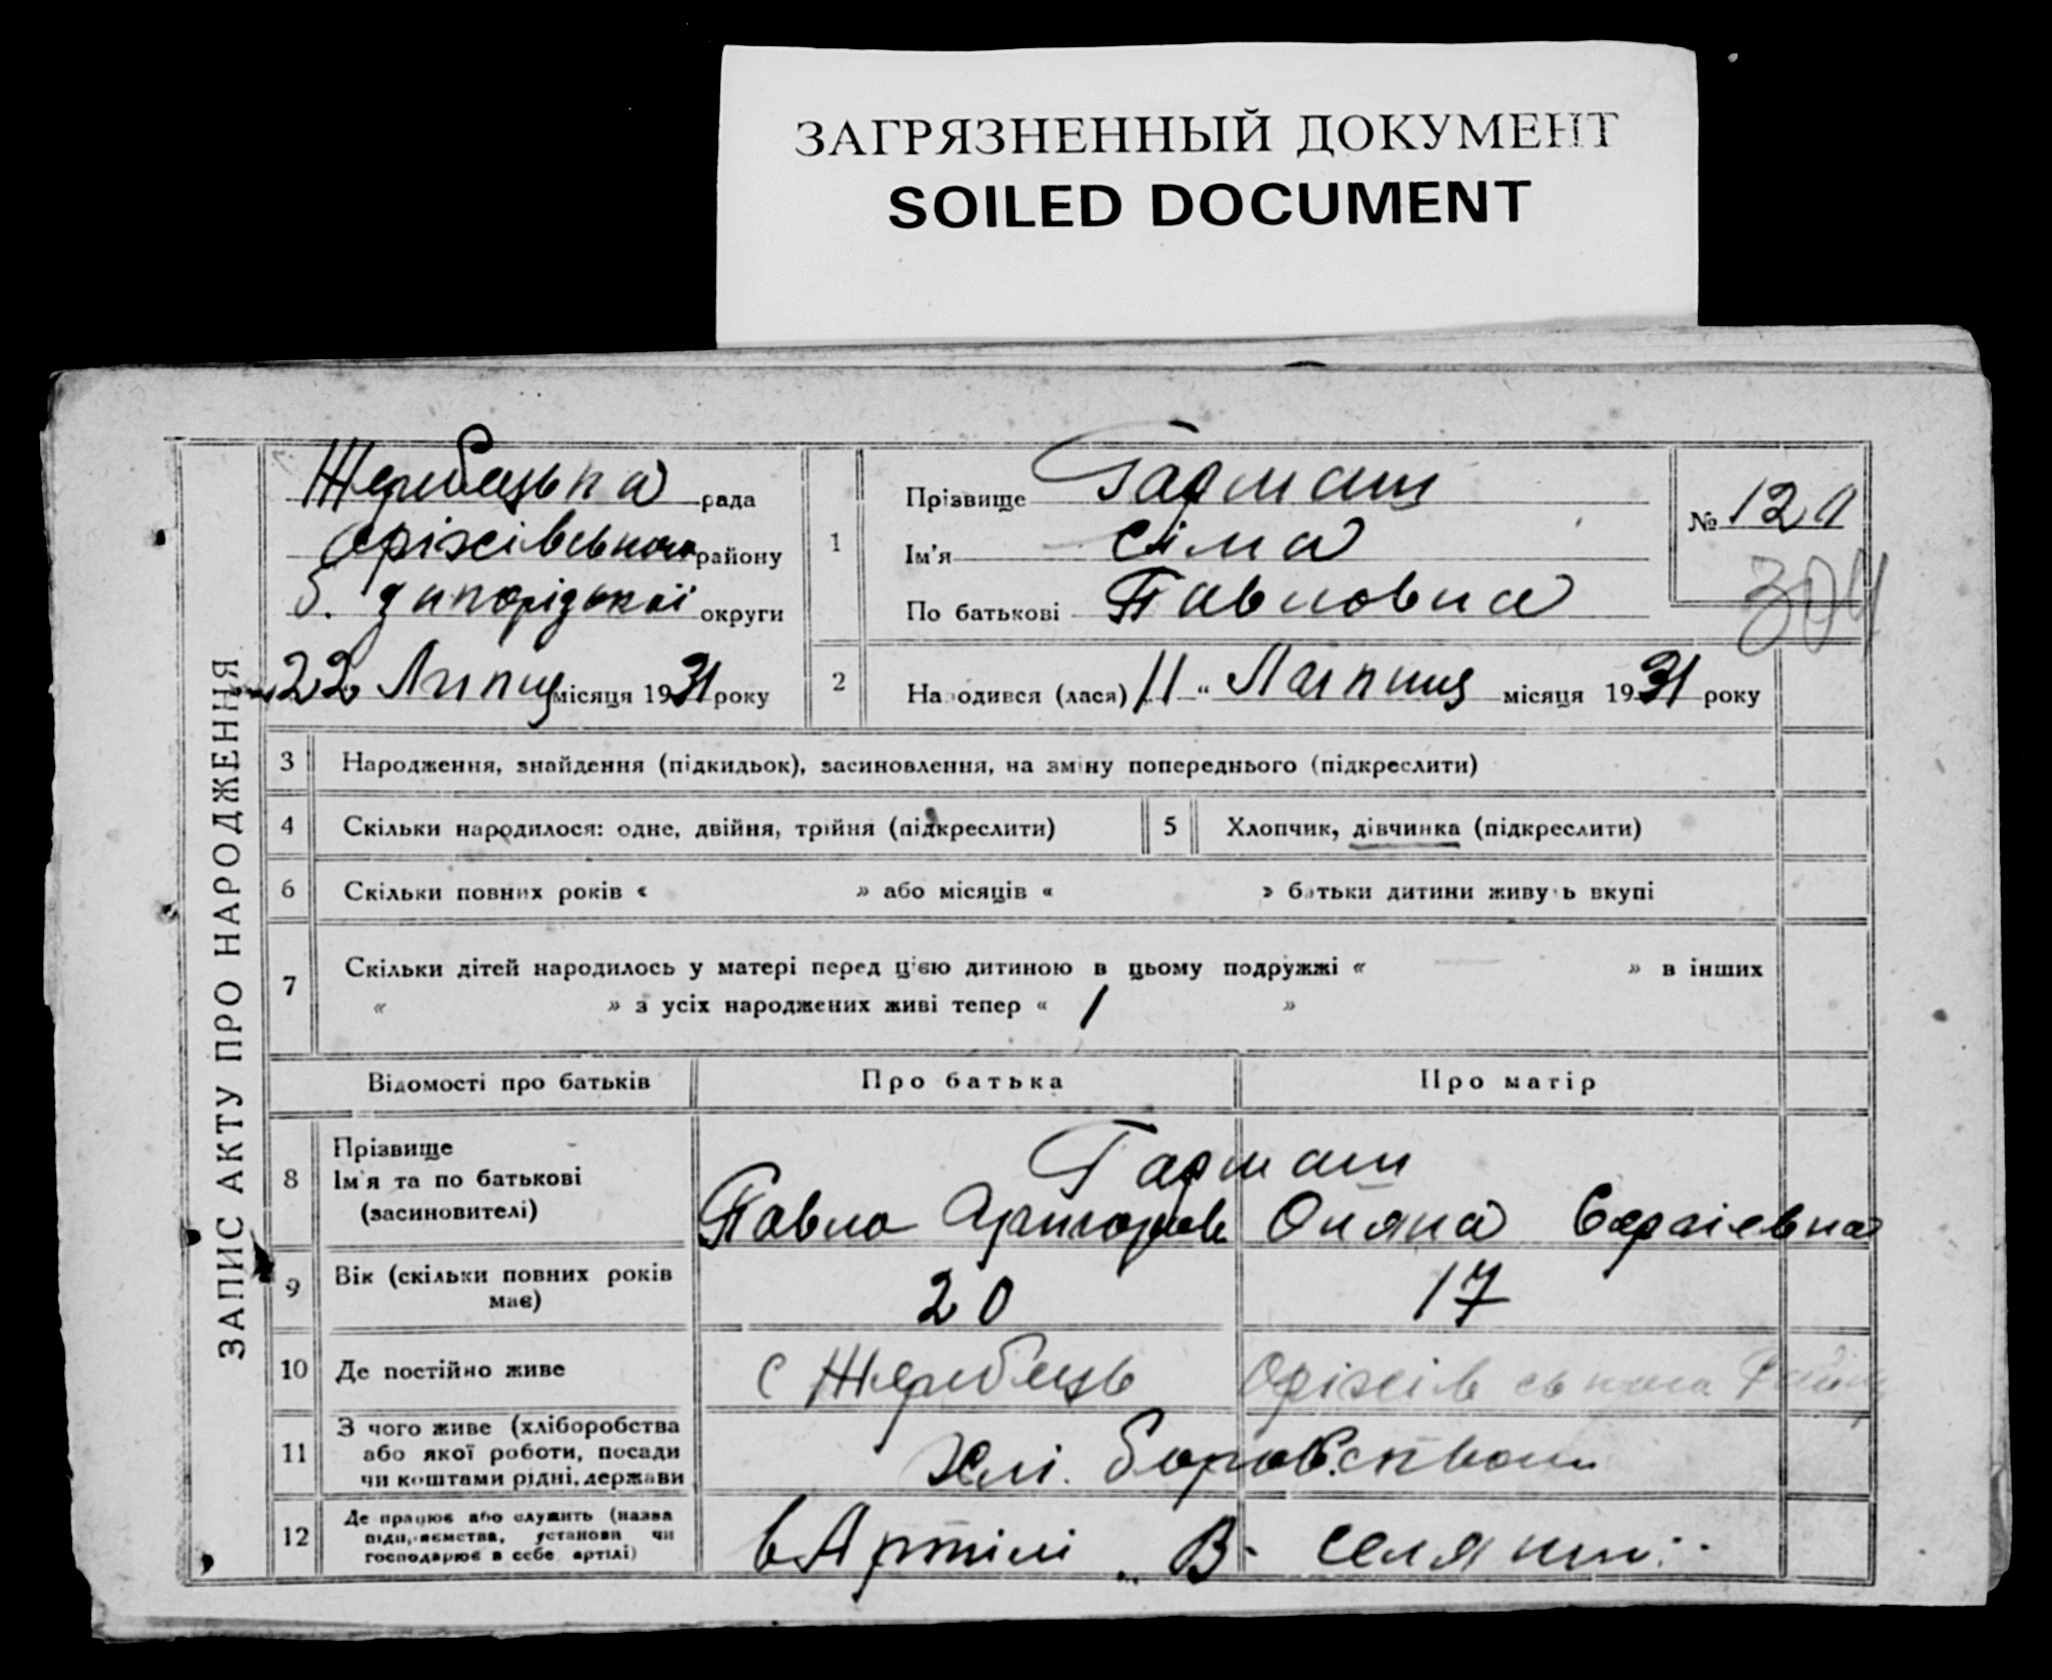 ЗАГРЯЗНЕННЫЙ ДОКУМЕНТ
SOILED DOCUMENT
ЗАПИС АКТУ ПРО НАРОДЖЕННЯ
Жеребецька рада
Оріхівського району
б. Запорізької округи
22 Липня місяця 1931 року
1
Прізвище Гармаш
Ім'я Сіма
По батькові Павловна
№ 120
304
2 Народився (лася) 11 " Липня місяця 1931 року
3 Народження, знайдення (підкидьок), засиновлення, на зміну попереднього (підкреслити)
4 Скільки народилося: одне, двійня, трійня (підкреслити)
5 Хлопчик, дівчинка (підкреслити)
6 Скільки повних років « » або місяців « » батьки дитини живуть вкупі
7 Скільки дітей народилось у матері перед цією дитиною в цьому подружжі « — » в інших
« » з усіх народжених живі тепер « 1 »
Відомості про батьків Про батька Про матір
8 Прізвище
Ім'я та по батькові
(засиновителі)
Гармаш
Павло Григоров Оляна Сергіевна
9 Вік (скільки повних років
має)
20 17
10 Де постійно живе с Жеребець Оріхівського Району
11 З чого живе (хліборобства
або якої роботи, посади
чи коштами рідні, держави
Хлі. боробством
12 Де працює або служить (назва
підприємства, установи чи
господарює в себе артілі)
в Артілі „ В- селянин